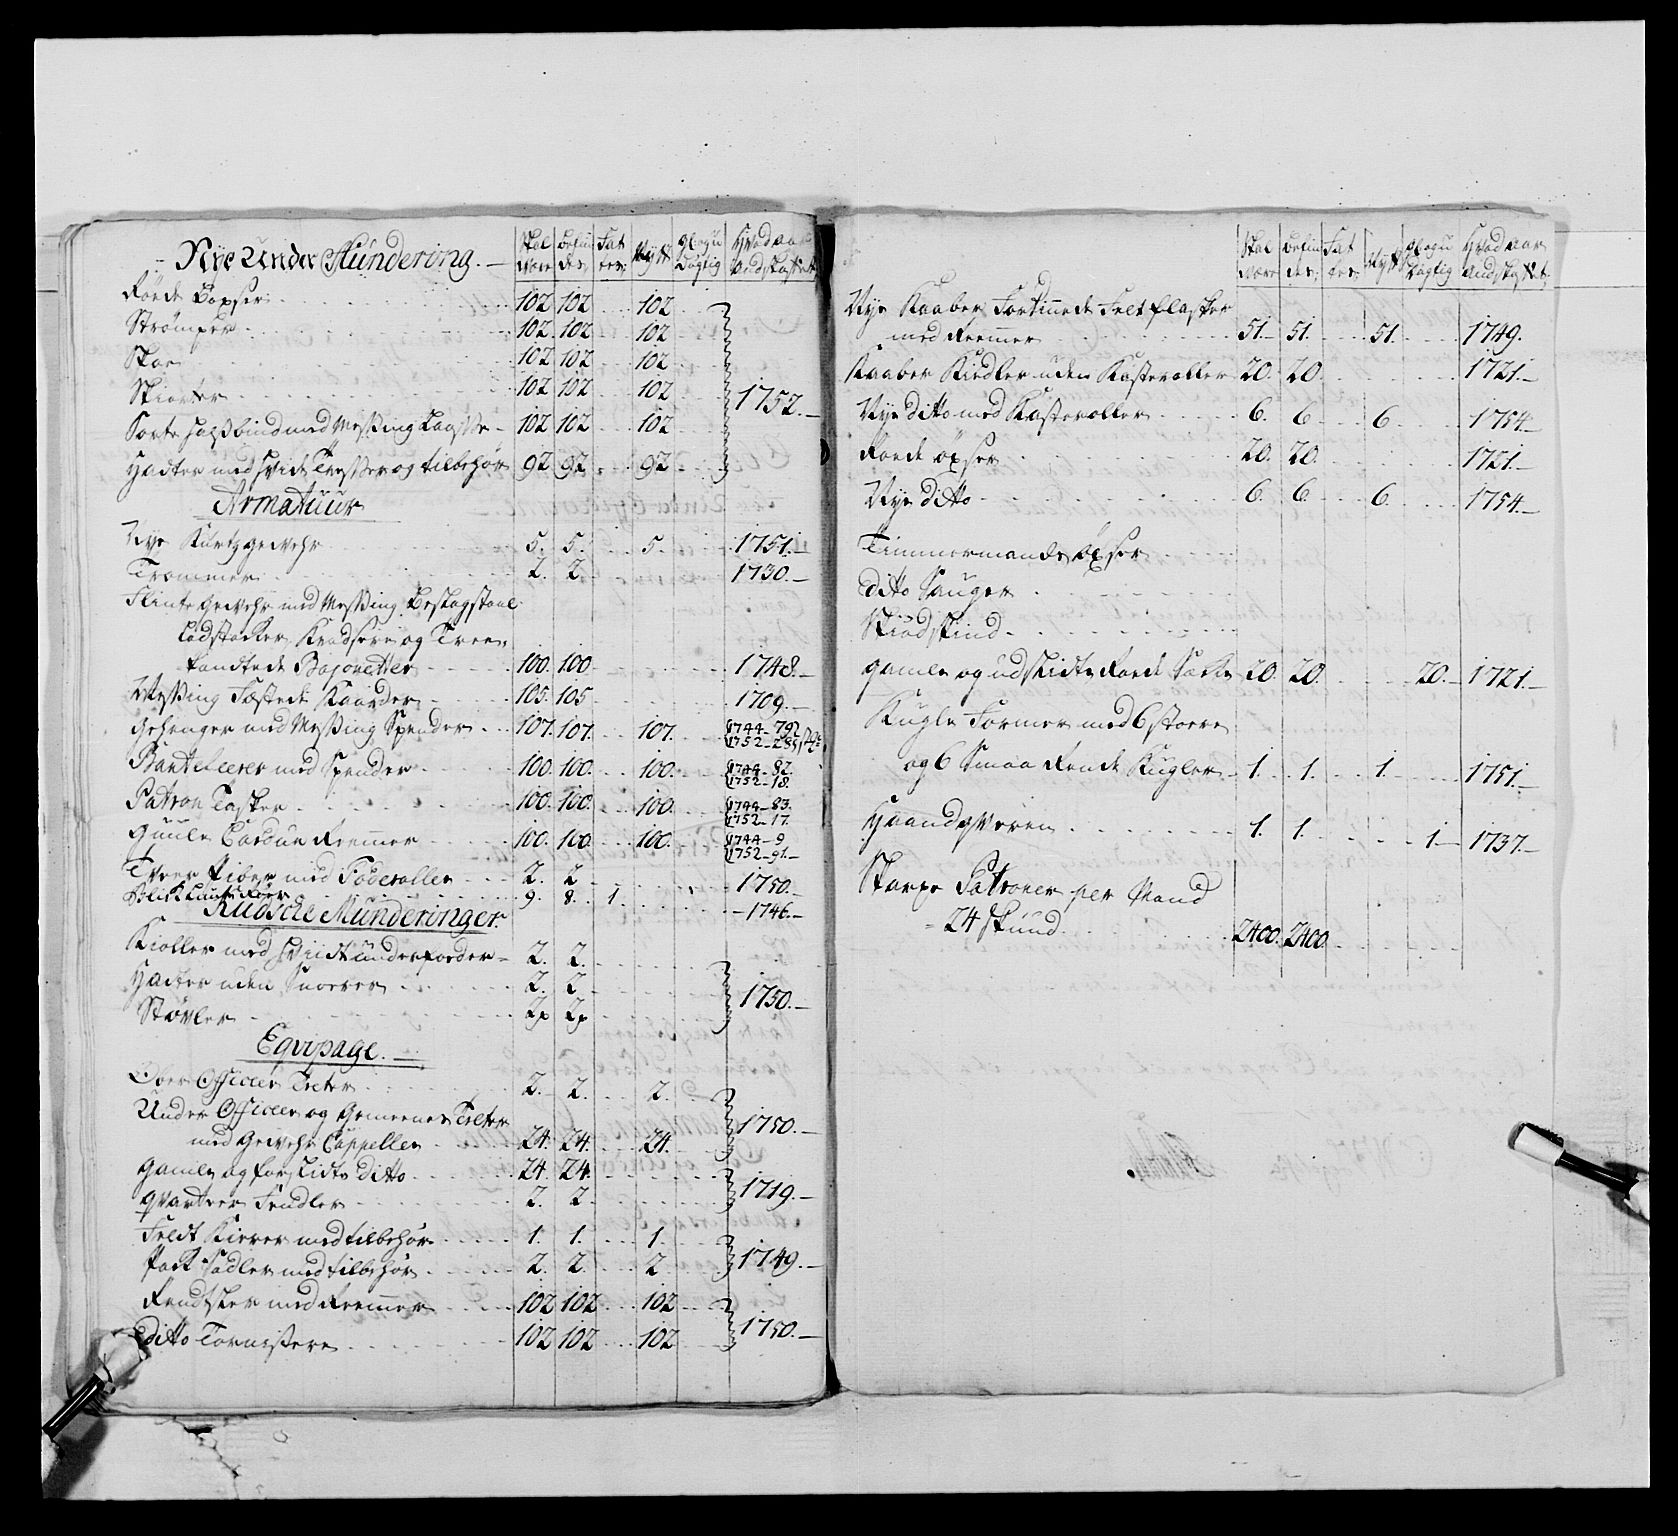 Nye Under Mundering. Skal være Befin des; Fat tes; Nytt Ubru Dögtig Hvad aar Andskaffet
Röede Boxser 102 102 102
Strömper 102 102 102
Skoe 102 102 102
Skiorter 102 102 102 1752.
Sorte Halsbind med Messing Laasse 102 102 102
Hatter med hvide Tresser og tilbehör 92 92 92
Armatuur
Nye Kurtzgewehr 5. 5. 5. 1751.
Trommer 2. 2. 1730.
Flinte Gewehr med Messing Beslag staal
Ladstocker, Kradsere og Tree
kandtede Bajonetter 100. 100. 1748.
Messing Fæstede Kaarder 105. 105 1709.
Gehenger med Messing Spender 107. 107. 107. 1744-79 1752-28
Banteleerer med Spender 100. 100. 100. 1744-82. 1752-18.
Patron Tasker 100. 100. 100. 1744-83. 1752-17.
Guule Cordun Remmer 100. 100. 100. 1744-9 1752-91.
Tveer Piber med Foderaller 2. 2 1750.
Blick Lunte Röer 9. 8. 1. 1746.
Kudsche Munderinger.
Kioller med hviidt underfoeder 2. 2.
Hatter uden Snorer 2. 2. 1750.
Stövler 2p 2p
Eqvipage.
Ober Officeer Telter 2. 2. 2.
Under Officeer og Gemeenes Telter
med Gewehr Cappeller 24. 24. 24. 1750.
Gamle og forslidte ditto 24. 24.
Qvarteer Fendler 2. 2. 1719.
Feldt Kierer med tilbehör 1. 1. 1.
Pack Sadler med tilbehör 2. 2. 2 1749.
Rendsler med Remmer 102 102 102
Ditto Tornistere 102 102 102 1750.
Skal være Befin des; Fat tes; Nytt Ubru Dögtig Hvad aar Andskaffet
Nye Kaaber Fortinnede Felt flasker
med Remmer 51. 51. 51. 1749.
Kaaber Kiedler uden Kasteroller 20. 20. 1721.
Nye ditto med Kasteroller 6. 6 6 1754
Felte öxser 20. 20. 1721.
Nye ditto 6. 6. 6. 1754.
Timmermands öxser
ditto Sauger
Skiödskind
Gamle og udslidte Felte 20. 20. 20. 1721.
Kugle Former med 6 stoere
og 6 Smaa Rende Kugler 1. 1. 1. 1751.
Haandqværn 1. 1. 1 1737.
Skarpe Patroner per Mand
24 skund 2400. 2400.